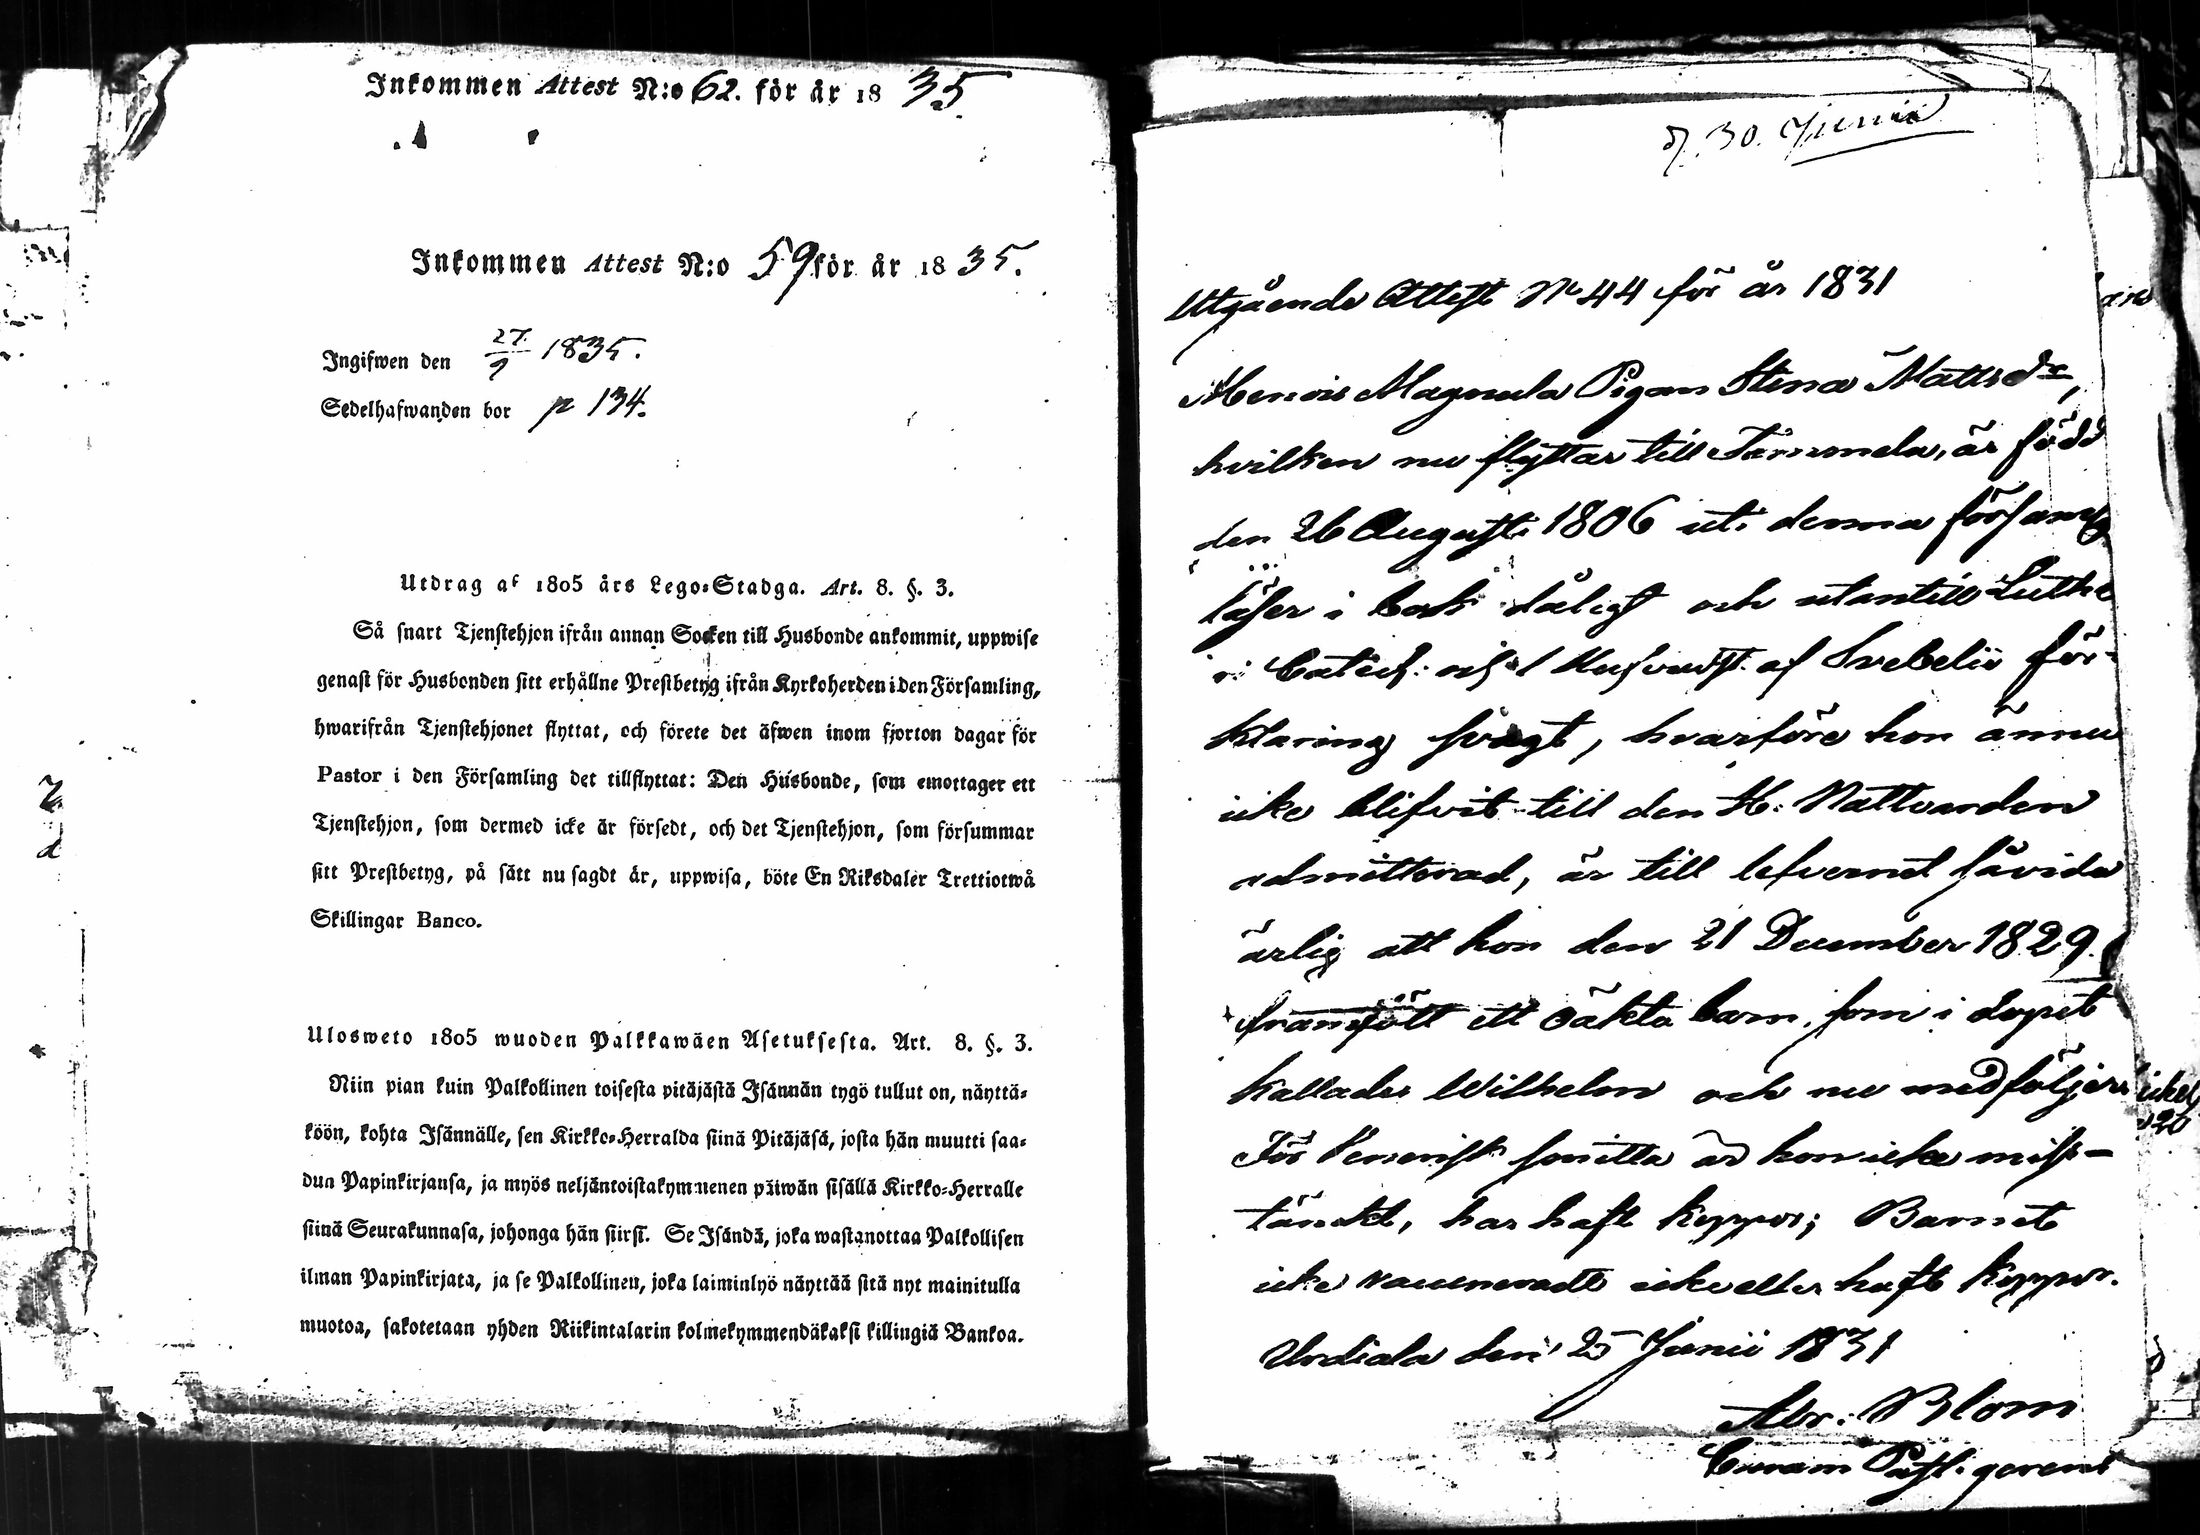 Inkommen Attest N:o 62. för år 1835
Inkommen Attest N:o 59 för år 1835.
Ingifwen den 27/9 1835.
Sedelhafwanden bor p 134.
Utdrag af 1805 års Lego-Stadga. Art. 8. §. 3.
Så snart Tjenstehjon ifrån annan Socken till Husbonde ankommit, uppwise
genast för Husbonden sitt erhållne Prestbetyg ifrån Kyrkoherden i den Församling,
hwarifrån Tjenstehjonet flyttat, och förete det äfwen inom fjorton dagar för
Pastor i den Församling det tillflyttat: Den Husbonde, som emottager ett
Tjenstehjon, som dermed icke är försedt, och det Tjenstehjon, som försummar
sitt Prestbetyg, på sätt nu sagdt är, uppwisa, böte En Riksdaler Trettiotwå
Skillingar Banco.
Ulosweto 1805 wuoden Palkkawäen Asetuksesta. Art. 8. §. 3.
Niin pian kuin Palkollinen toisesta pitäjästä Isännän tygö tullut on, näyttä-
köön, kohta Isännälle, sen Kirkko-Herralda siinä Pitäjäsä, josta hän muutti saa-
dun Papinkirjansa, ja myös neljäntoistakymmenen päiwän sisällä Kirkko-Herralle
siinä Seurakunnasa, johonga hän siirsi. Se Isändä, joka wastanottaa Palkollisen
ilman Papinkirjata, ja se Palkollinen, joka laiminlyö näyttää sitä nyt mainitulla
muotoa, sakotetaan yhden Riikintalarin kolmekymmendäkaksi killingiä Bankoa.
30. Junii
Utgående Attest No 44 för år 1831
Magnula Pigan Stina Mattsdr,
hvilken nu flyttar till Tammela, är född
den 26 Augusti 1806 uti denna församl
läser i bok dåligt och utantill Luthe
ri Catech: och Husvudst. af Svebelii för-
klaring svagt, hvarföre hon ännu
icke blifvit till den H: Nattvarden
admitterad, är till lefvernet såvida
ärlig att hon den 21 December 1829.
framfött ett oäkta barn, som i dopet
kallades Wilhelm och nu medföljer.
För Venerisk smitta är hon icke miss-
tänkt, har haft koppor; Barnet
icke vaccineradt icke eller haft koppor.
Urdiala den 25 Junii 1831
Abr: Blom
Curam Past. gerens